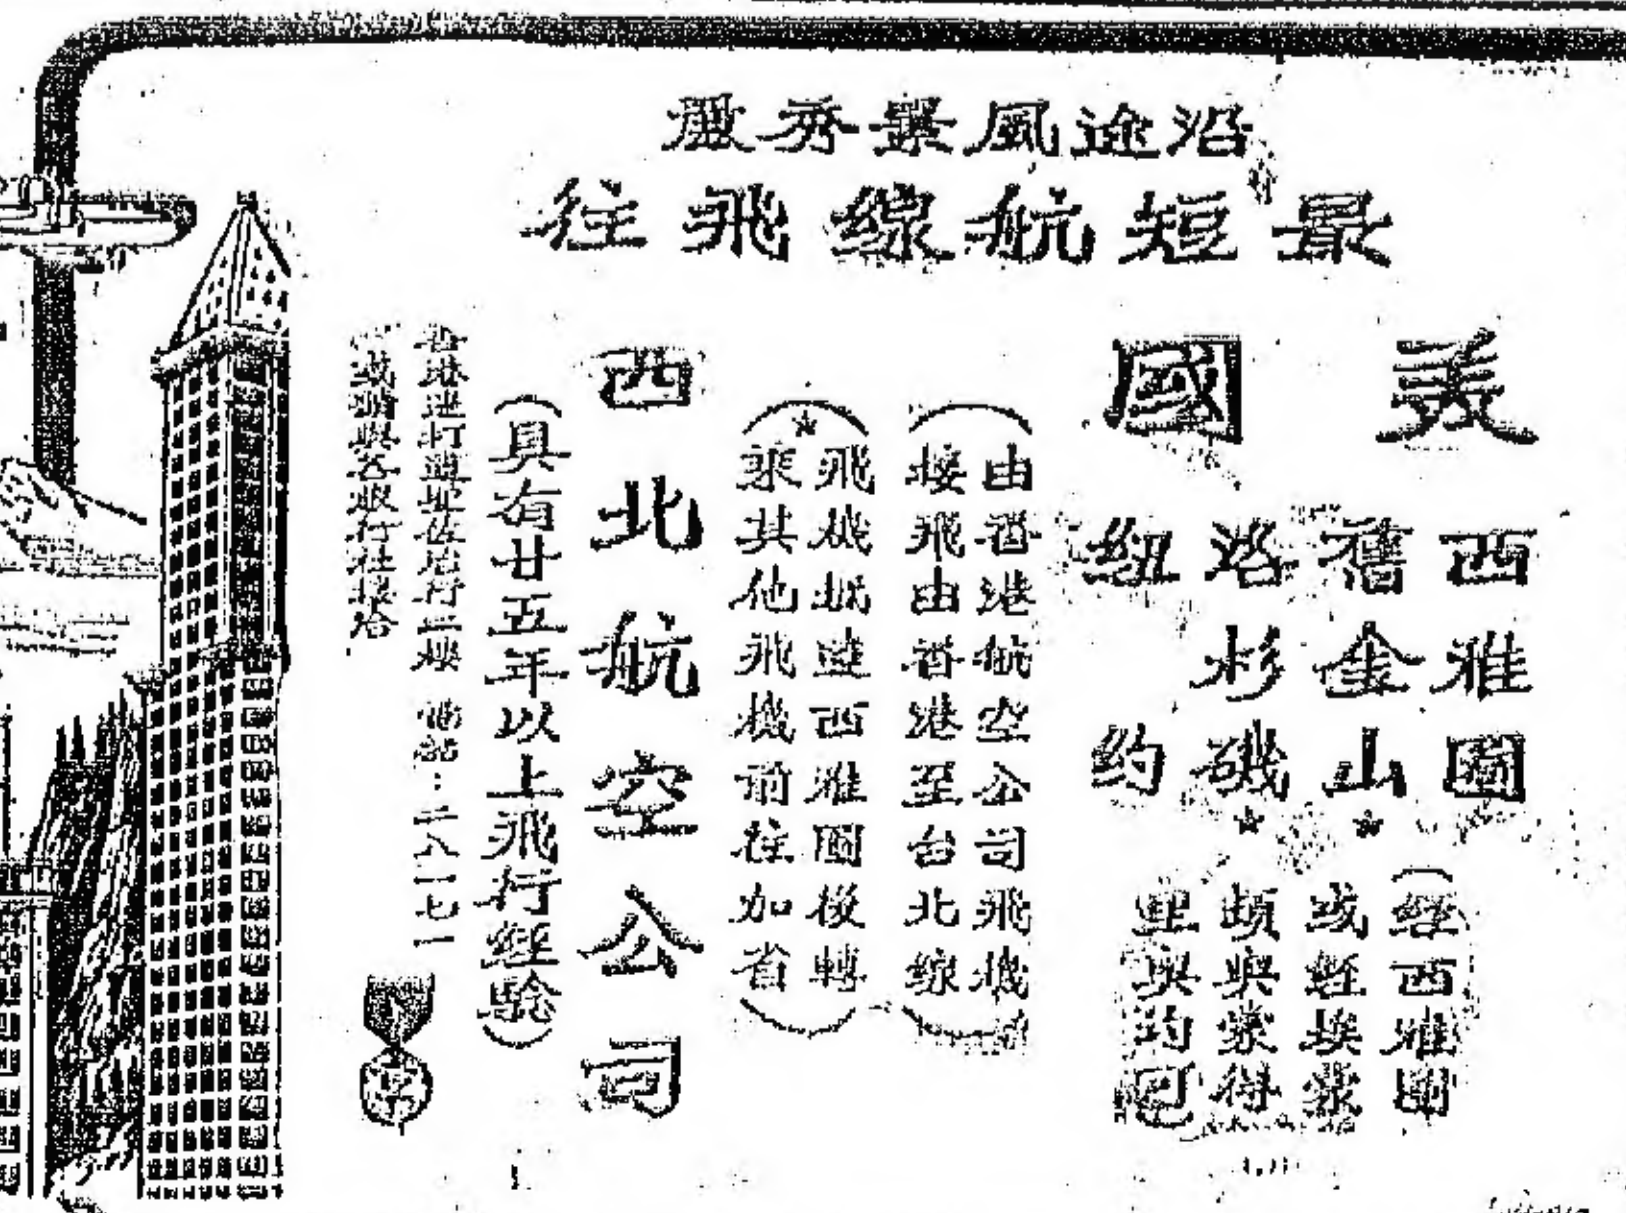 沿途風景秀麗
最短航線飛往
美國
西雅圖
舊金山★
洛杉磯★
紐約
(經西雅圖
或經埃蒙
頓與蒙得
里奧均可
(由香港航空公司飛機
接飛由香港至台北線)
(★飛機抵達西雅圖後轉
乘其他飛機前往加省)
西北航空公司
(具有廿五年以上飛行經驗)
香港遮打道聖佐治行二樓 電話:二八一七一
或請與各旅行社接洽